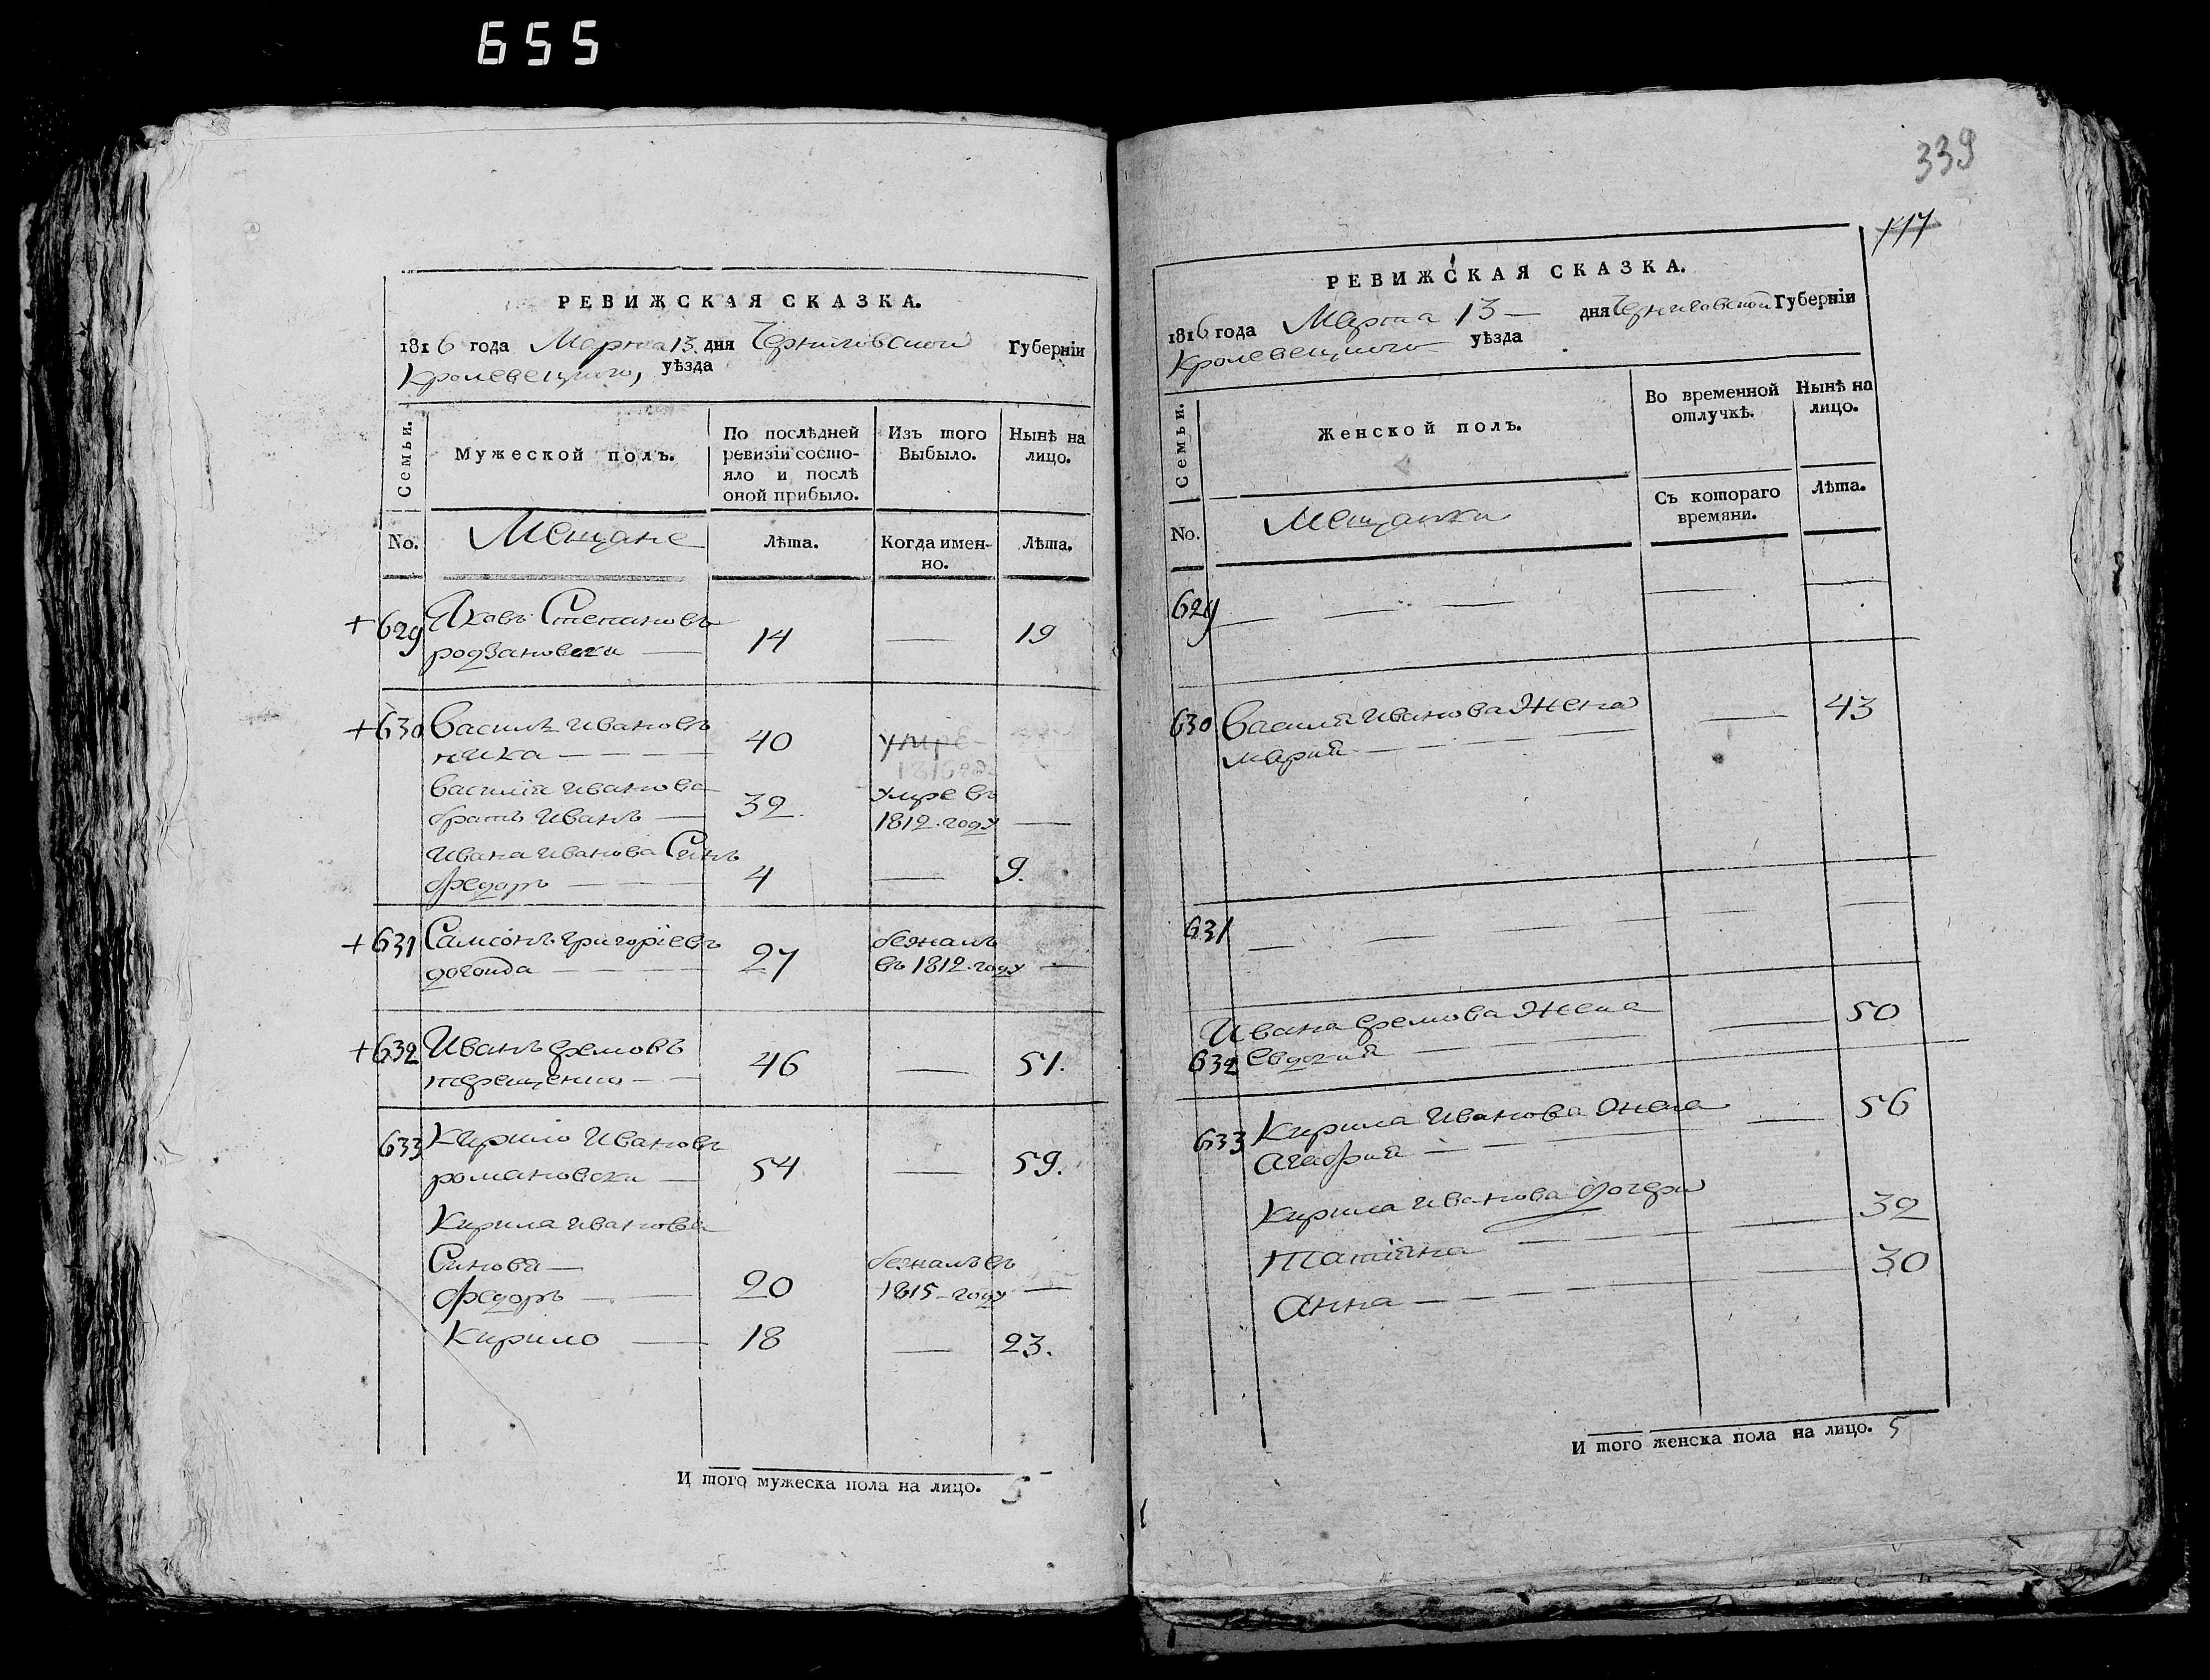 655
РЕВИЖСКАЯ СКАЗКА.
1816 года Марта 13. дня Черниговской Губерніи
Кролевецкого, уѣзда
Семьи.
Мужеской полъ.
По послѣдней ревизіи состо-
яло и послѣ
оной прибыло.
Изъ того
Выбыло.
Нынѣ на
лицо.
No.
Мещане
Лѣта.
Когда имен-
но.
Лѣта.
+629 Яковъ Степановъ
родзановски — 14 — 19
+630 Василь Ивановъ
40 умре
1816
Василія Иванова
братъ Иванъ — 32. умре въ
1812. году —
Ивана Иванова Синъ
Федоръ — 4 — 9.
+631 Самсонъ Григоріевъ
27 бежалъ
въ 1812. году —
+632 Иванъ Ефремовъ
терещенко — 46 — 51.
633 Кирило Ивановъ
романовски — 54 — 59.
Кирила Иванова
Синови —
Федоръ — 20 бежалъ въ
1815 - году —
Кирило — 18 — 23.
И того мужеска пола на лицо. 5
339
117
РЕВИЖСКАЯ СКАЗКА.
1816 года Марта 13 — дня Черниговской Губерніи
Кролевецкого уѣзда
Семьи.
Женской полъ.
Во временной
отлучкѣ.
Нынѣ на
лицо.
No.
Мещанки
Съ котораго
времяни.
Лѣта.
629 — — — — —
630 Василія Иванова Жена
Марія — — 43
631 — — — — —
Ивана Ефремова Жена
632 Евдокия — — 50
633 Кирила Иванова Жена
Агафия — — 56
Кирила Иванова дочери
Татіяна — — 32
Анна — — 30
И того женска пола на лицо. 5